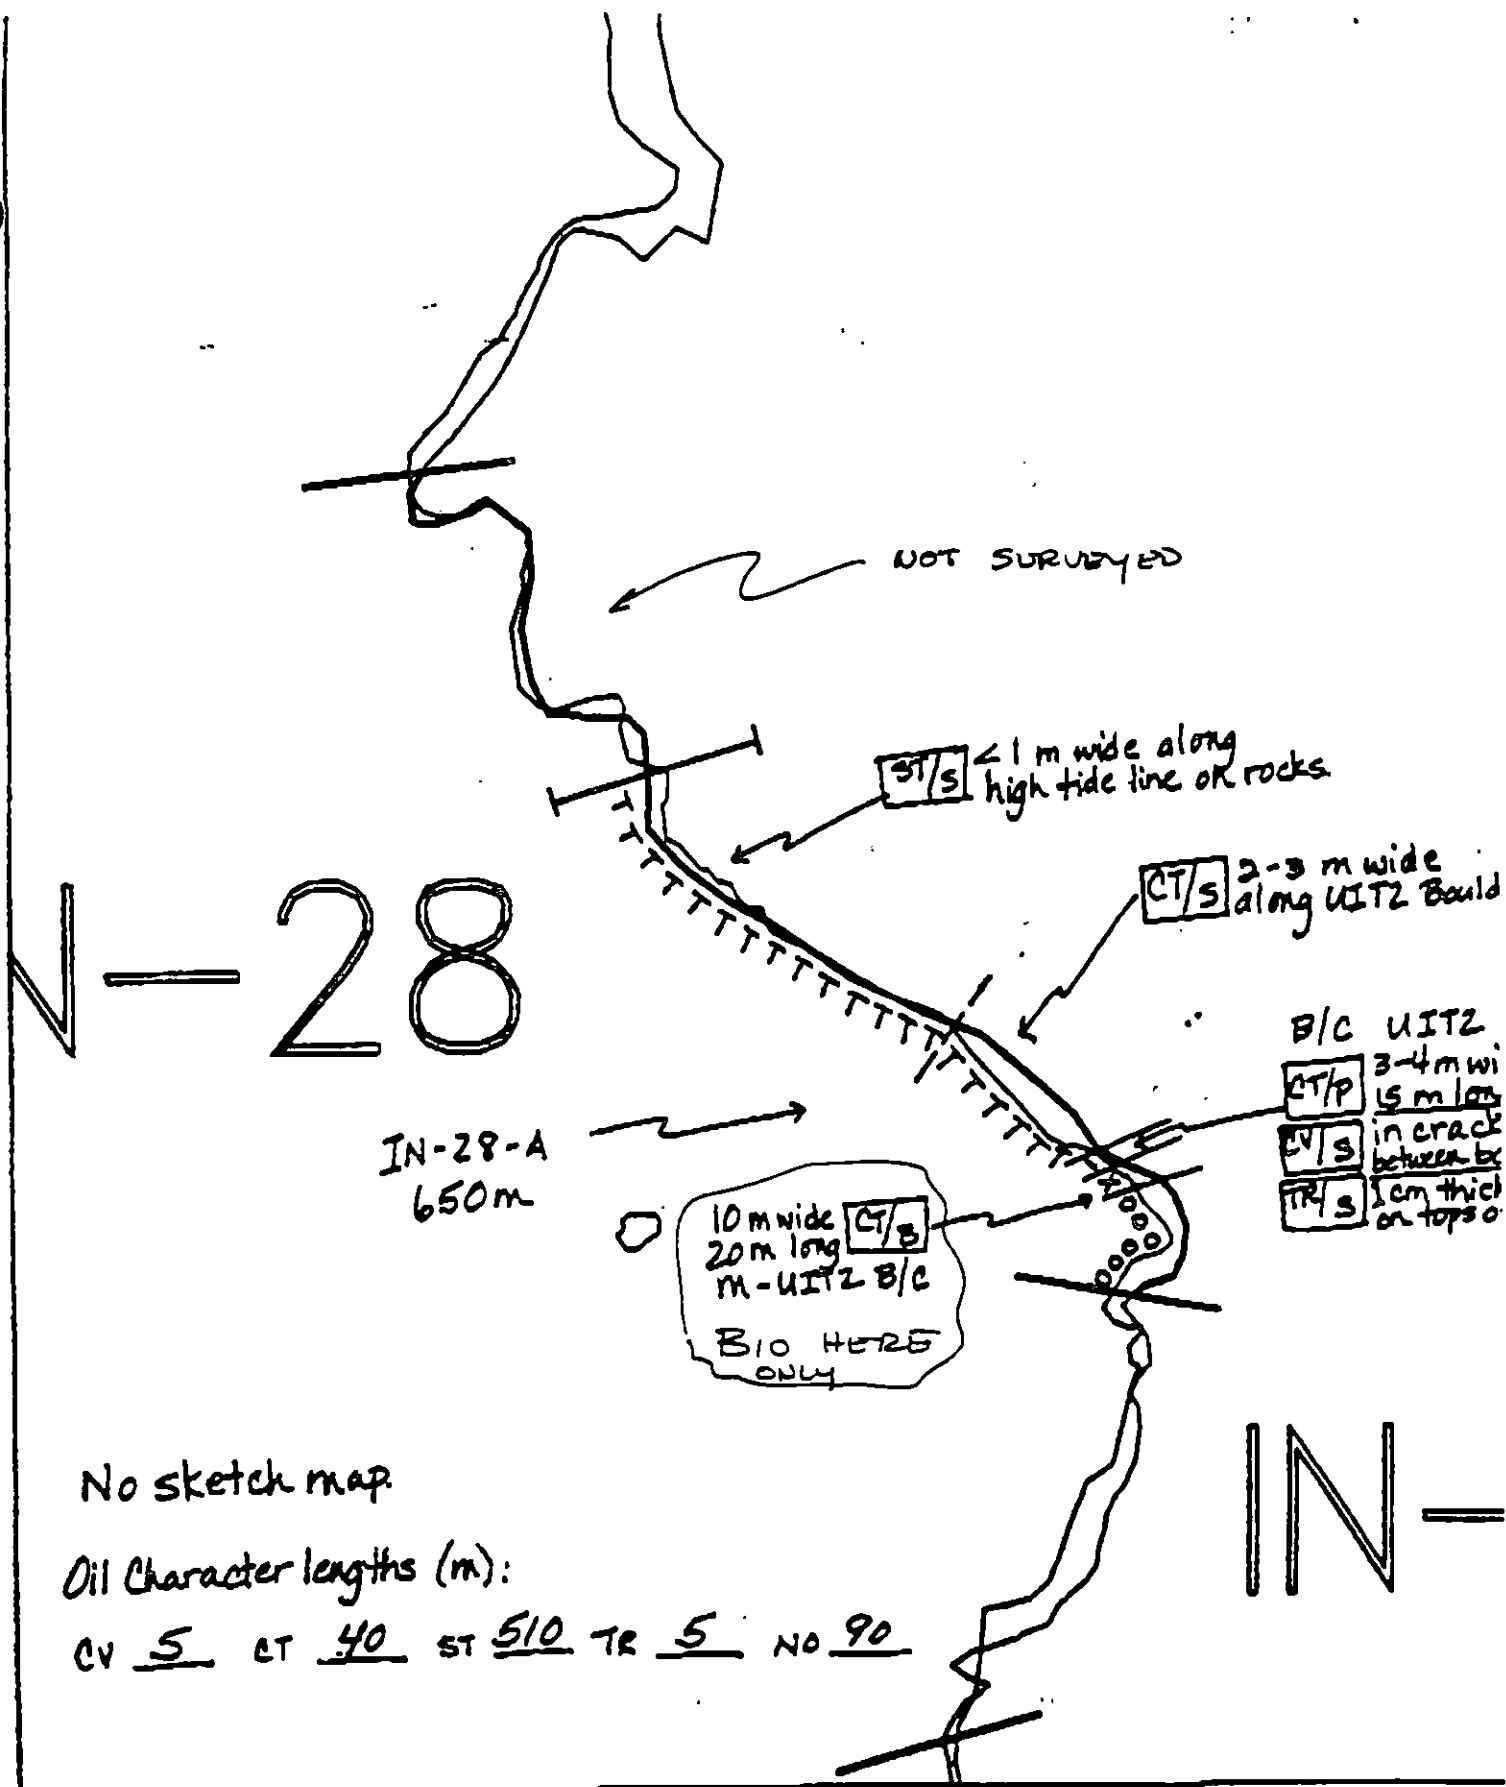 NOT SURVEYED
ST/S < 1 m wide along
high tide line on rocks.
CT/S 2-3 m wide
along UITZ Bould
N-28
B/C UITZ
CT/P 3-4 m wi
15 m lon
CV/S in crack
between bo
TR/S 1 cm thick
on tops o
IN-28-A
650m
10 m wide CT/B
20 m long
m-UITZ B/C
BIO HERE
ONLY
No sketch map.
IN-
Oil Character lengths (m):
CV 5 CT 40 ST 510 TR 5 NO 90